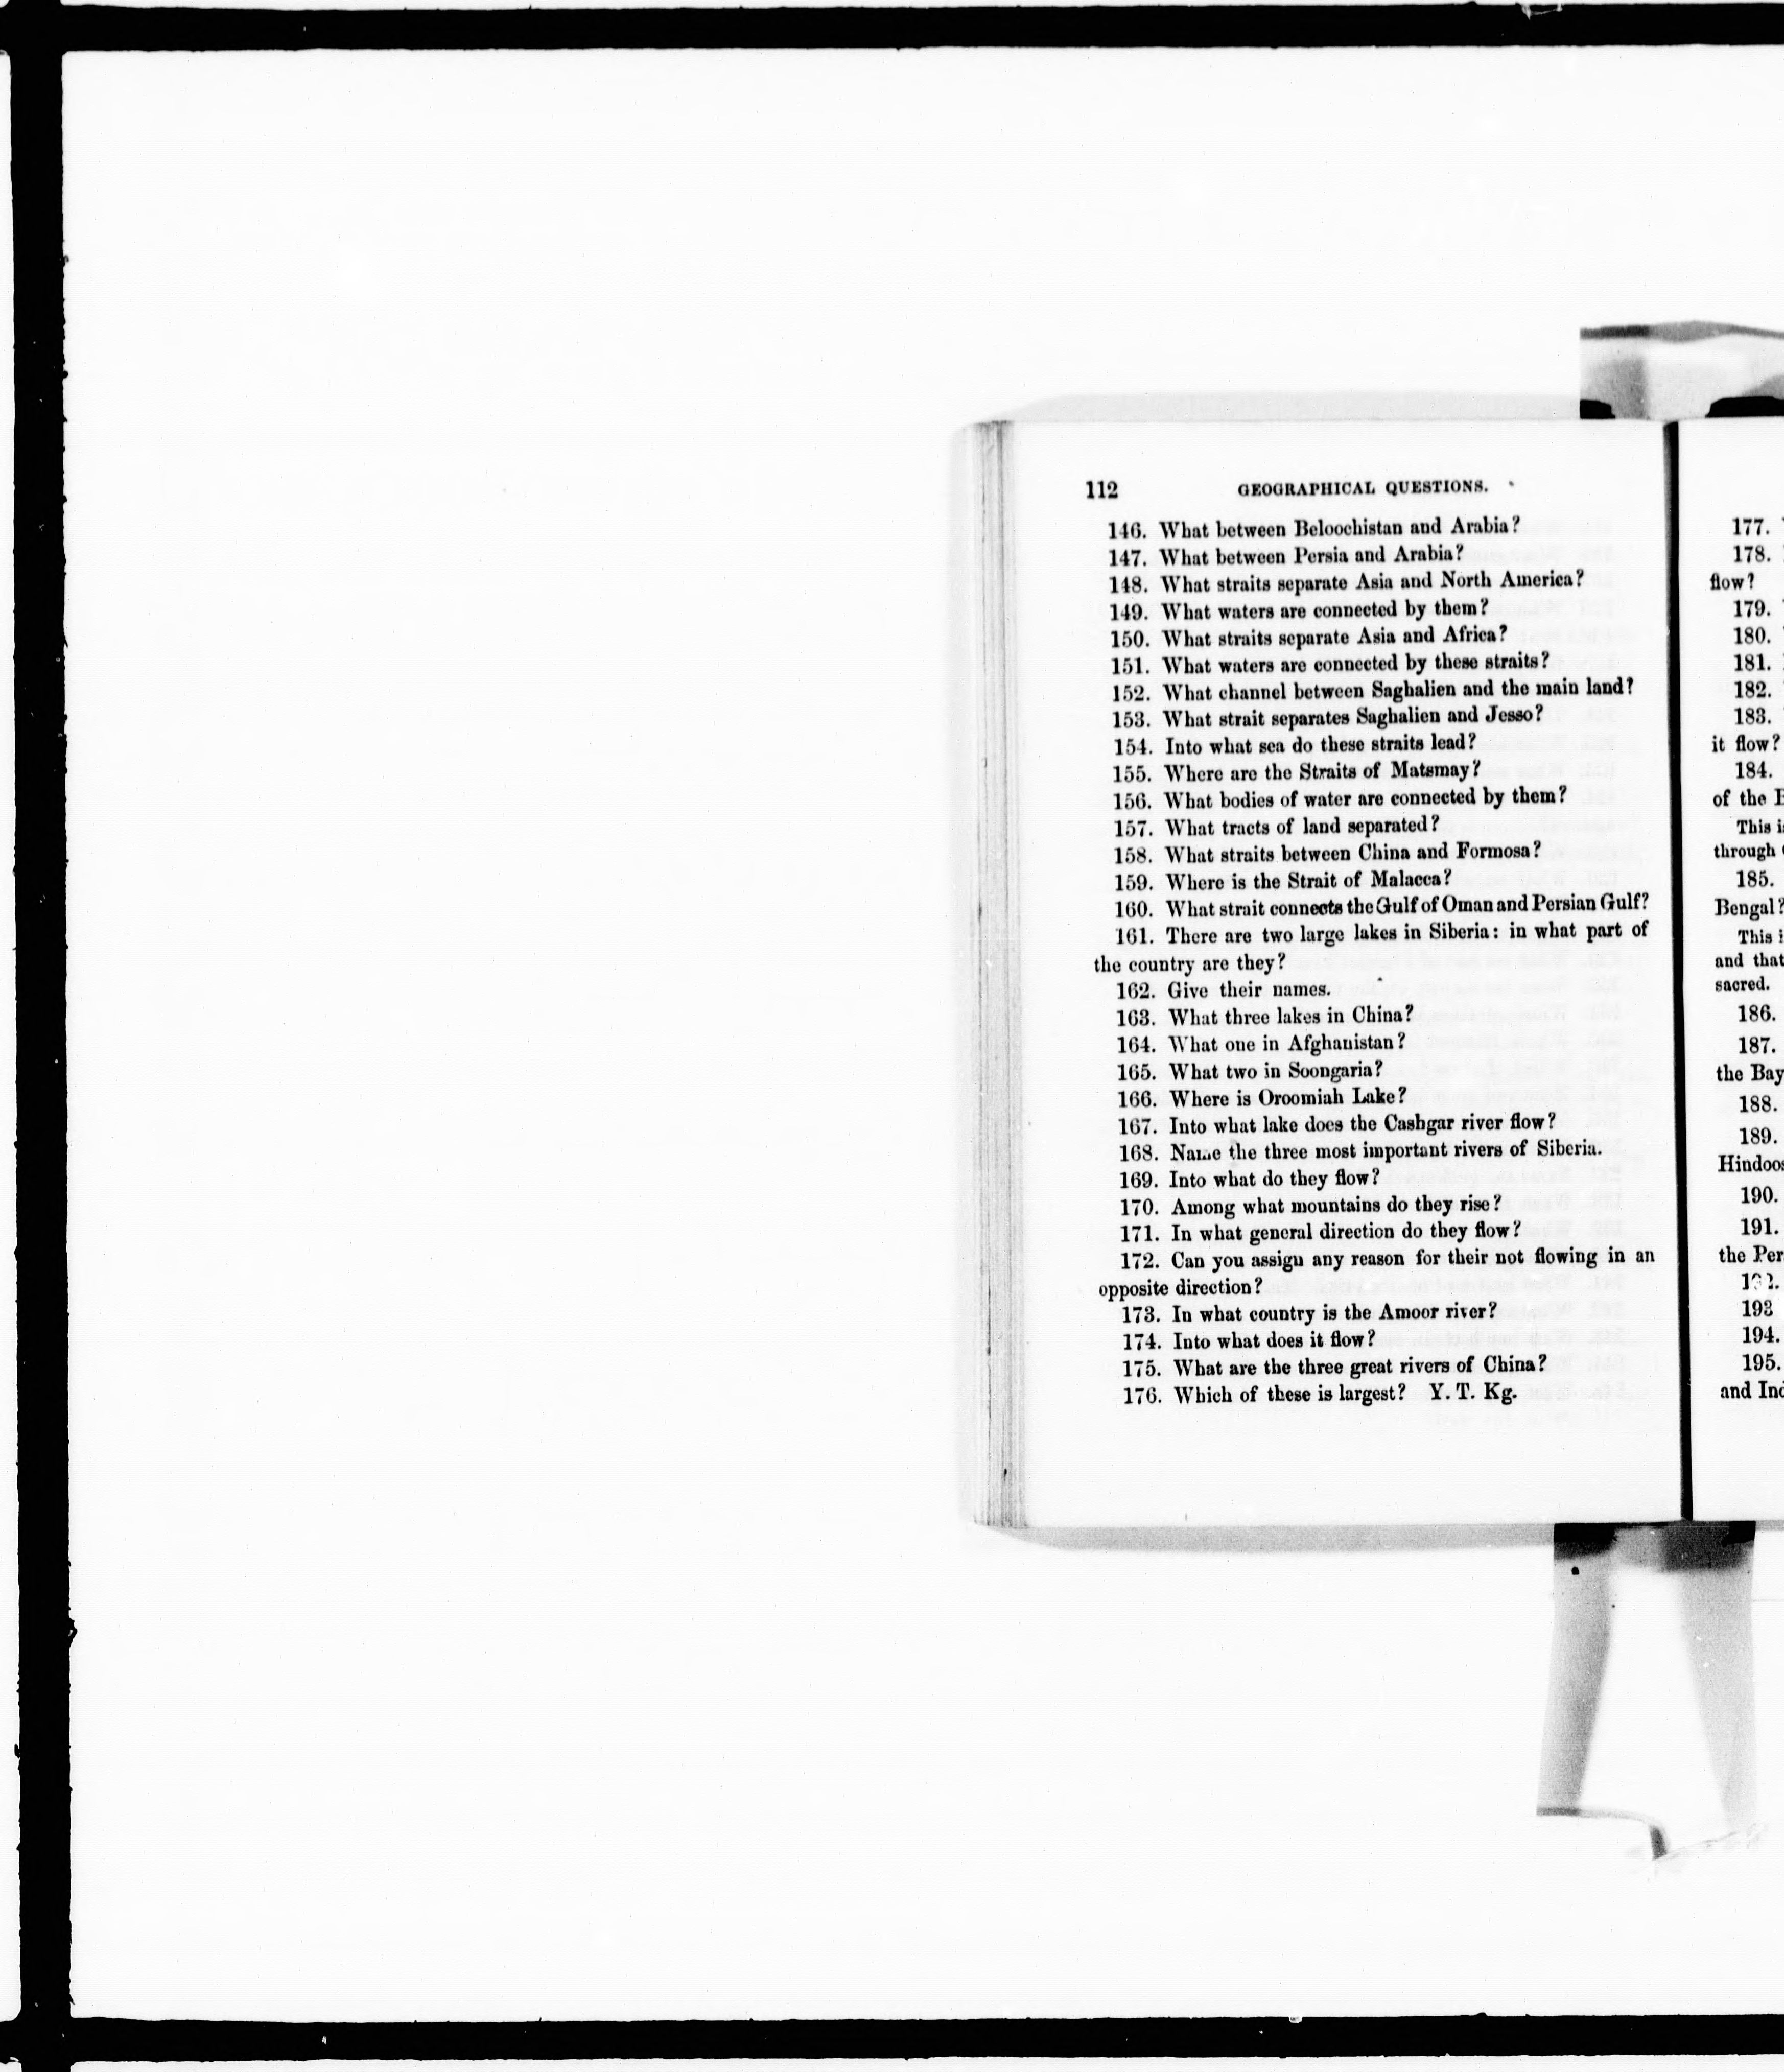 112 GEOGRAPHICAL QUESTIONS.
146. What between Beloochistan and Arabia?
147. What between Persia and Arabia?
148. What straits separate Asia and North America?
149. What waters are connected by them?
150. What straits separate Asia and Africa?
151. What waters are connected by these straits?
152. What channel between Saghalien and the main land?
153. What strait separates Saghalien and Jesso?
154. Into what sea do these straits lead?
155. Where are the Straits of Matsmay?
156. What bodies of water are connected by them?
157. What tracts of land separated?
158. What straits between China and Formosa?
159. Where is the Strait of Malacca?
160. What strait connects the Gulf of Oman and Persian Gulf?
161. There are two large lakes in Siberia: in what part of
the country are they?
162. Give their names.
163. What three lakes in China?
164. What one in Afghanistan?
165. What two in Soongaria?
166. Where is Oroomiah Lake?
167. Into what lake does the Cashgar river flow?
168. Name the three most important rivers of Siberia.
169. Into what do they flow?
170. Among what mountains do they rise?
171. In what general direction do they flow?
172. Can you assign any reason for their not flowing in an
opposite direction?
173. In what country is the Amoor river?
174. Into what does it flow?
175. What are the three great rivers of China?
176. Which of these is largest? Y. T. Kg.
177.
178.
flow?
179.
180.
181.
182.
183.
it flow?
184.
of the
This
through
185.
Bengal?
This
and that
sacred.
186.
187.
the Bay
188.
189.
190.
191.
the
193
194.
195.
and